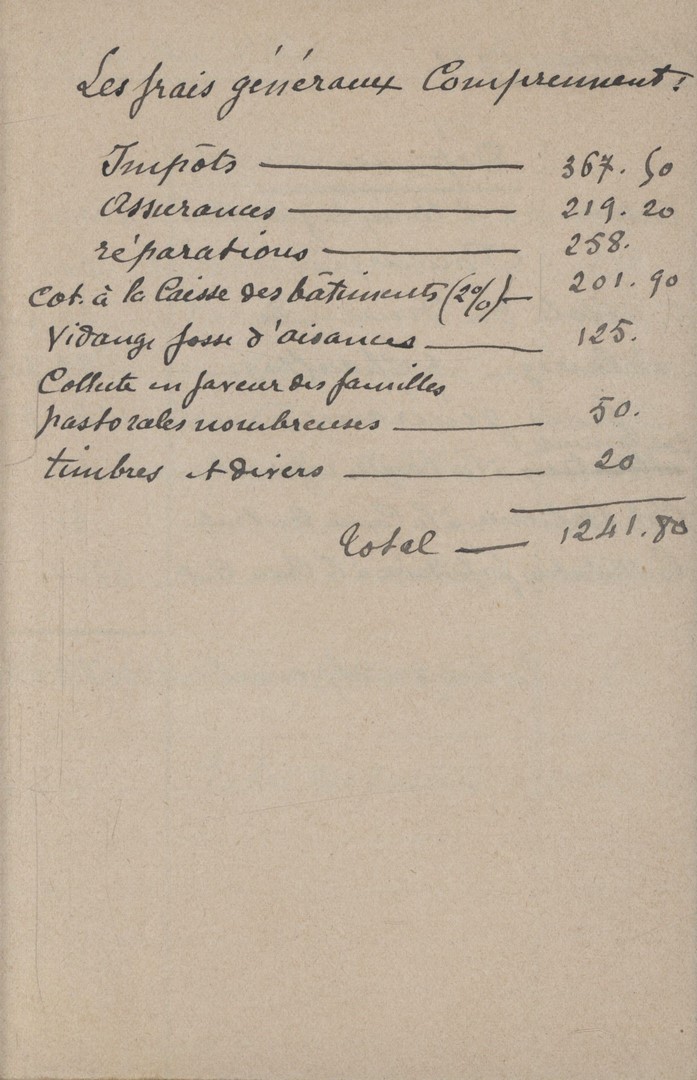 Les frais généraux Comprennent :
Impôts — 367. 50
Assurances — 219. 20
réparations — 258.
cot. à la Caisse des bâtiments (2%) — 201. 90
Vidange fosse d'aisances — 125.
Collecte en faveur des familles
pastorales nombreuses — 50.
timbres et divers — 20
Total — 1241. 80